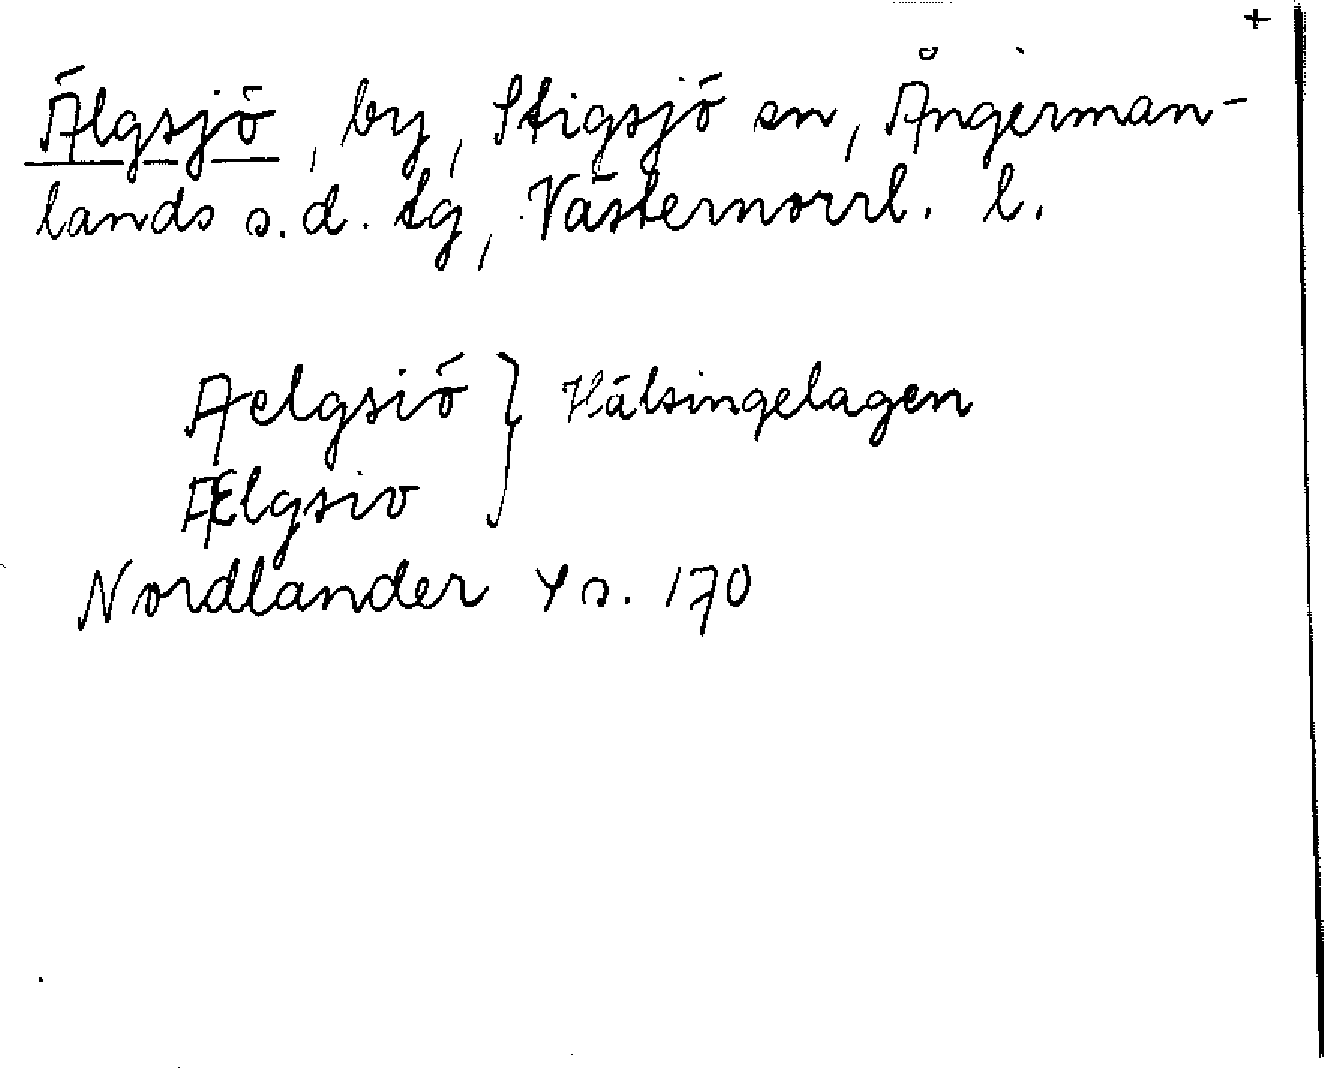 +
Älgsjö, by, Stigsjö sn, Ångerman-
lands s.d. tg, Västernorrl. l.
Aelgsiö } Hälsingelagen
Ælgsio
Nordlander Y s. 170